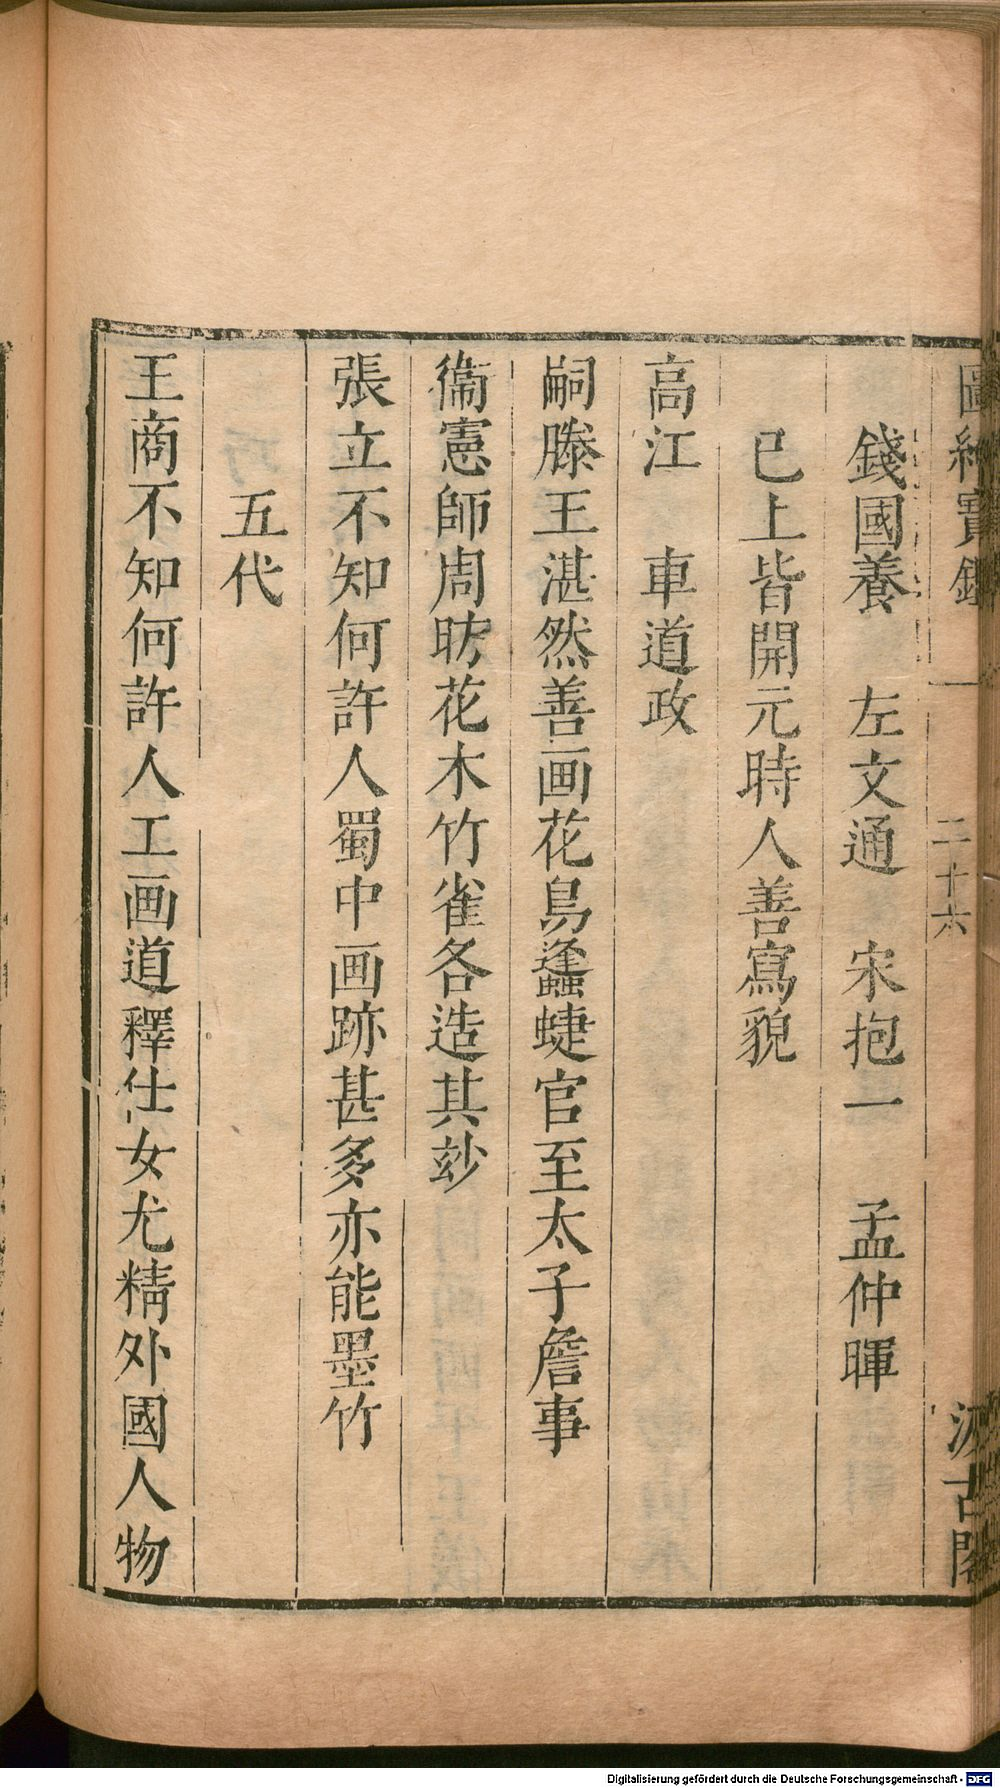 圖繪寶鑑 一 二十六 汲古閣
錢國養 左文通 宋抱一 孟仲暉
已上皆開元時人善寫貌
高江 車道政
嗣滕王湛然善画花鳥蠭蜨官至太子詹事
衞憲師周昉花木竹雀各造其玅
張立不知何許人蜀中画跡甚多亦能墨竹
五代
王商不知何許人工画道釋仕女尤精外國人物
Digitalisierung gefördert durch die Deutsche Forschungsgemeinschaft - DFG